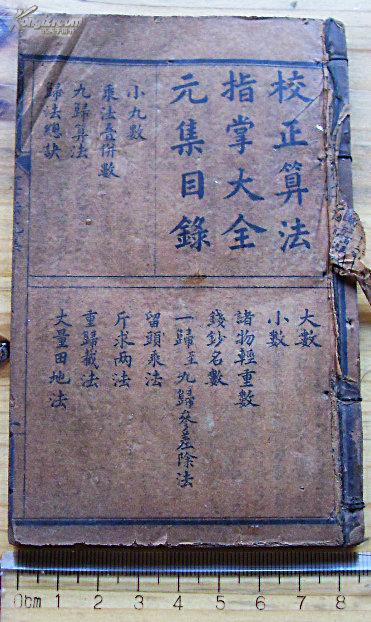 校正算法
指掌大全
元集目錄
小九數
乘法臺併數
九歸算法
歸法總訣
大數
小數
諸物輕重數
錢鈔名數
一歸至九歸參差除法
留頭乘法
斤求两法
重歸截法
丈量田地法
Kongfz.com
0cm 1 2 3 4 5 6 7 8